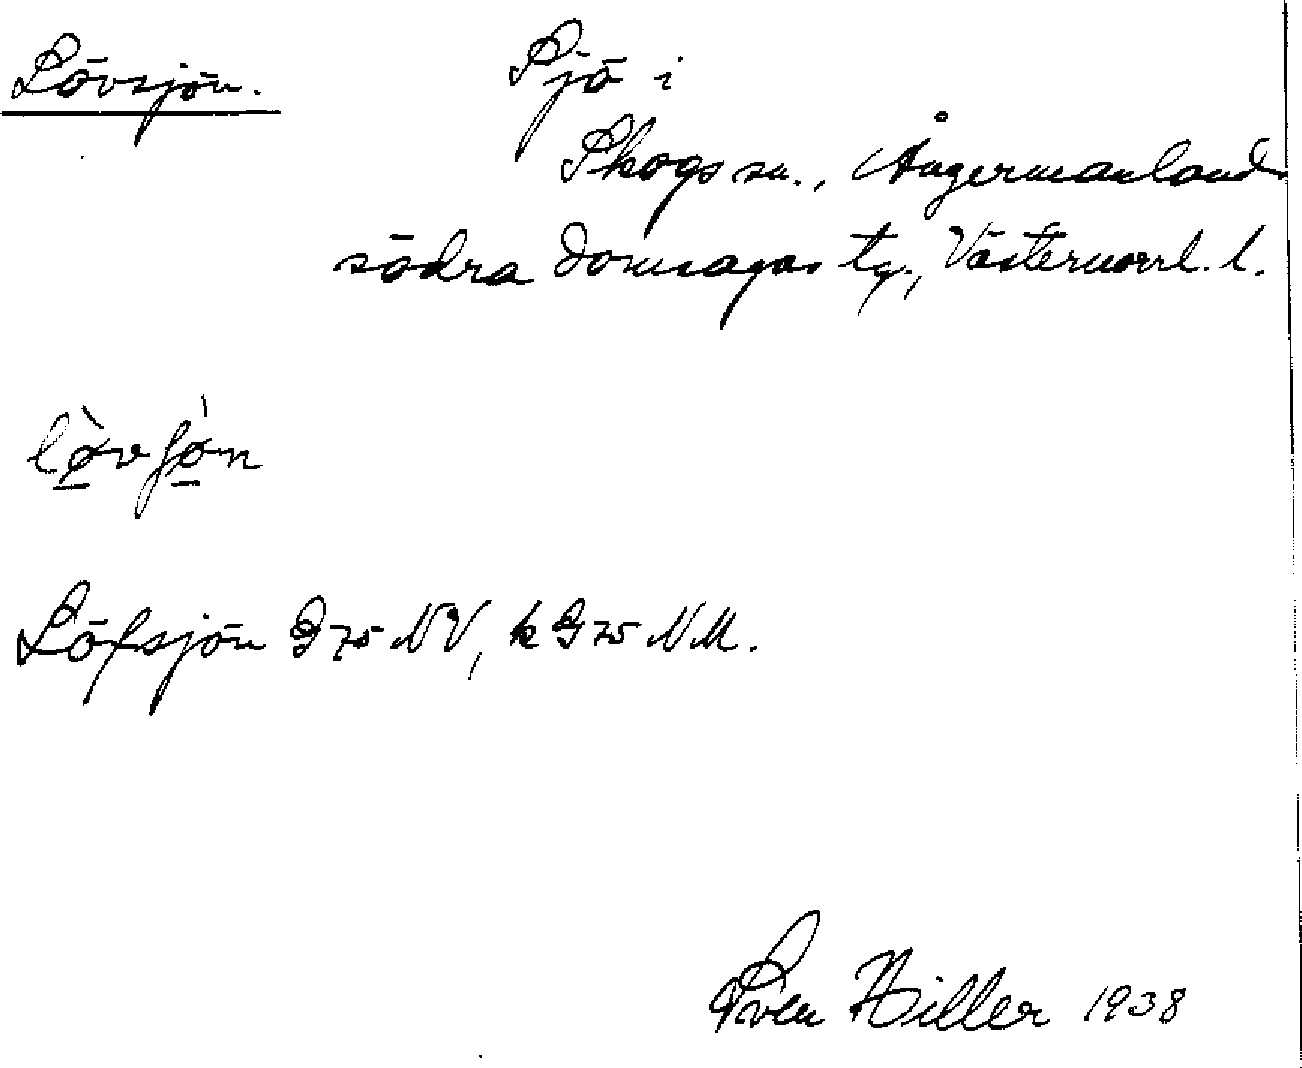 Lövsjön. Sjö i
Skogs sn., Ångermanlands
södra domsagas tg., Västernorrl. l.
lø̱̀vʃø̱̀n
Löfsjön G 75 NV, k G 75 NM.
Sven Hiller 1938